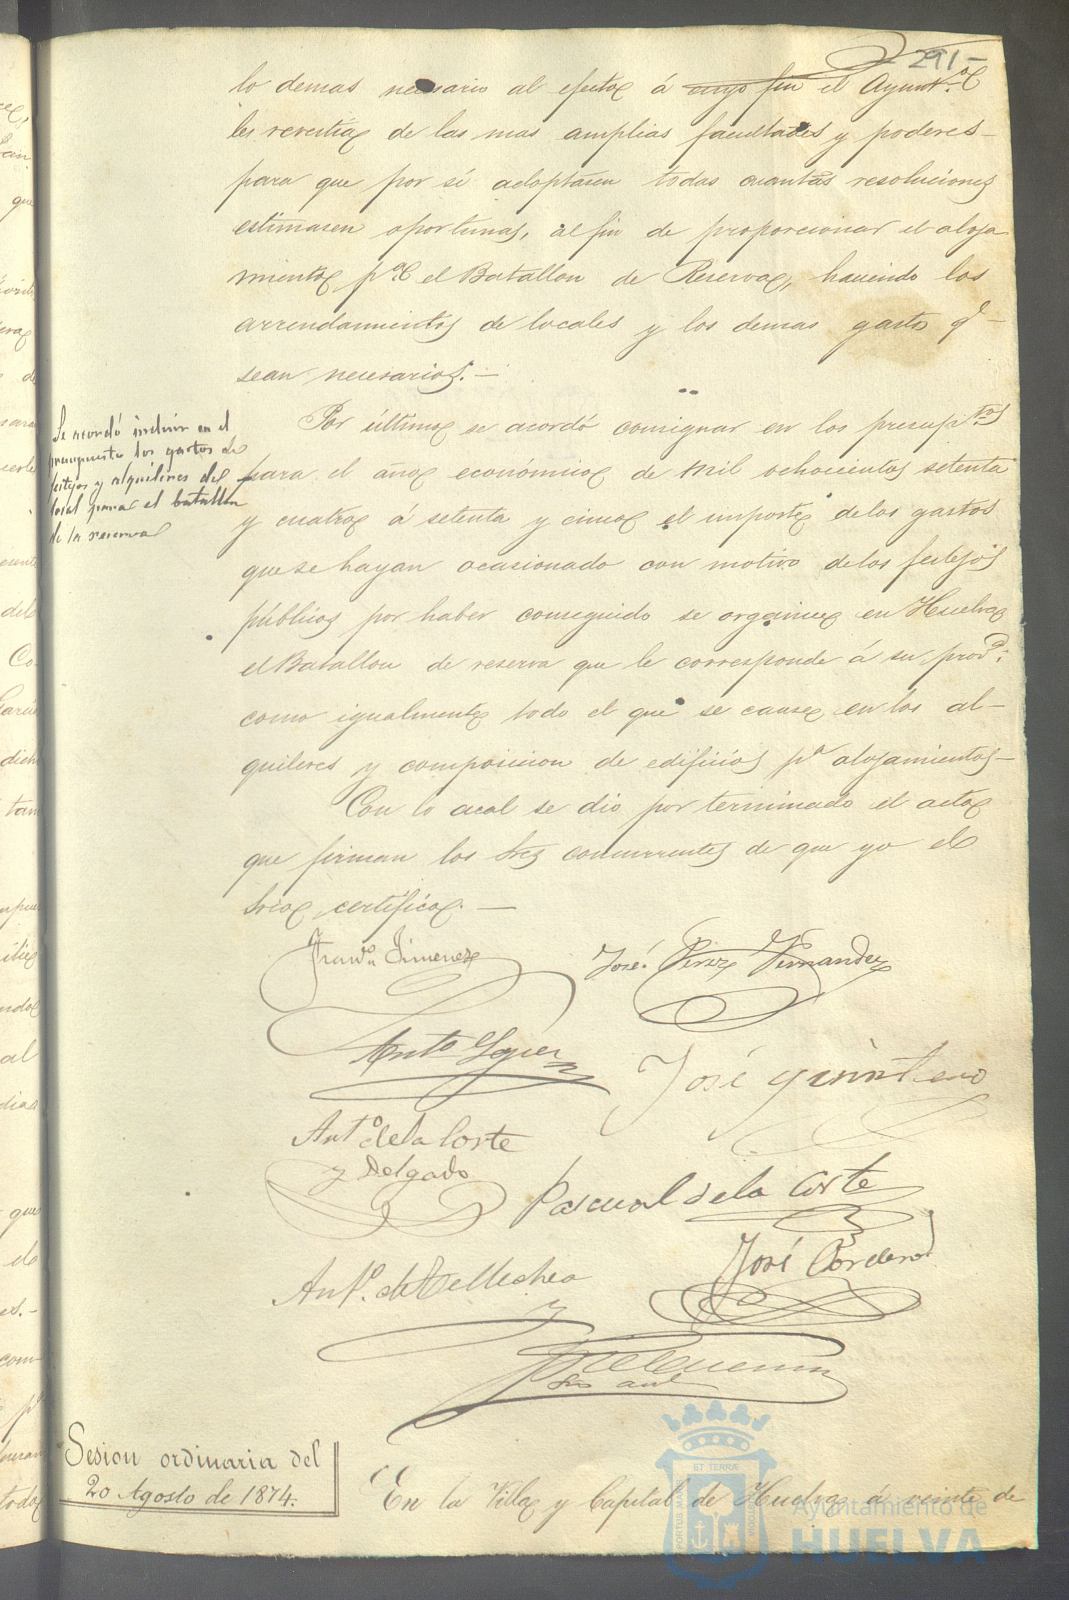 291-
lo demas necesario al efecto á cuyo fin el Ayuntº
les revestia de las mas amplias facultades y poderes-
para que por si adoptasen todas cuantas resoluciones
estimasen oportunas, al fin de proporcionar el aloja
miento pª el Batallon de Reserva, haciendo los
arrendamientos de locales y los demas gastos qᵉ
sean necesarios.-
Por último se acordó consignar en los presupᵗᵒˢ
para el año económico de mil ochocientos setenta
y cuatro á setenta y cinco el importe de los gastos
que se hayan ocasionado con motivo de los festejos
públicos por haber conseguido se organice en Huelva
el Batallon de reserva que le corresponde á su provª:
como igualmente todo el que se cause en los al-
quileres y composicion de edificios pª alojamientos-
Con lo acal se dio por terminado el acto
que firman los Sres concurrentes de que yo el
Srio certifico.-
Se acordó incluir en el
presupuesto los gastos de
festejos y alquileres del
local para el batallon
de la reserva
Franᶜᵒ Jimenez
José Perez Fernandez
Antº Lopez
José Quintero
Antº de la Corte
y Delgado
Pascual de la Corte
José Cordero
Antº. de Tellechea
Sesion ordinaria del
20 Agosto de 1874.
En la Villa y Capital de Huelva á veinte de
ET TERRÆ
PORTUS MARIS
CUSTODIA
Ayuntamiento de
HUELVA